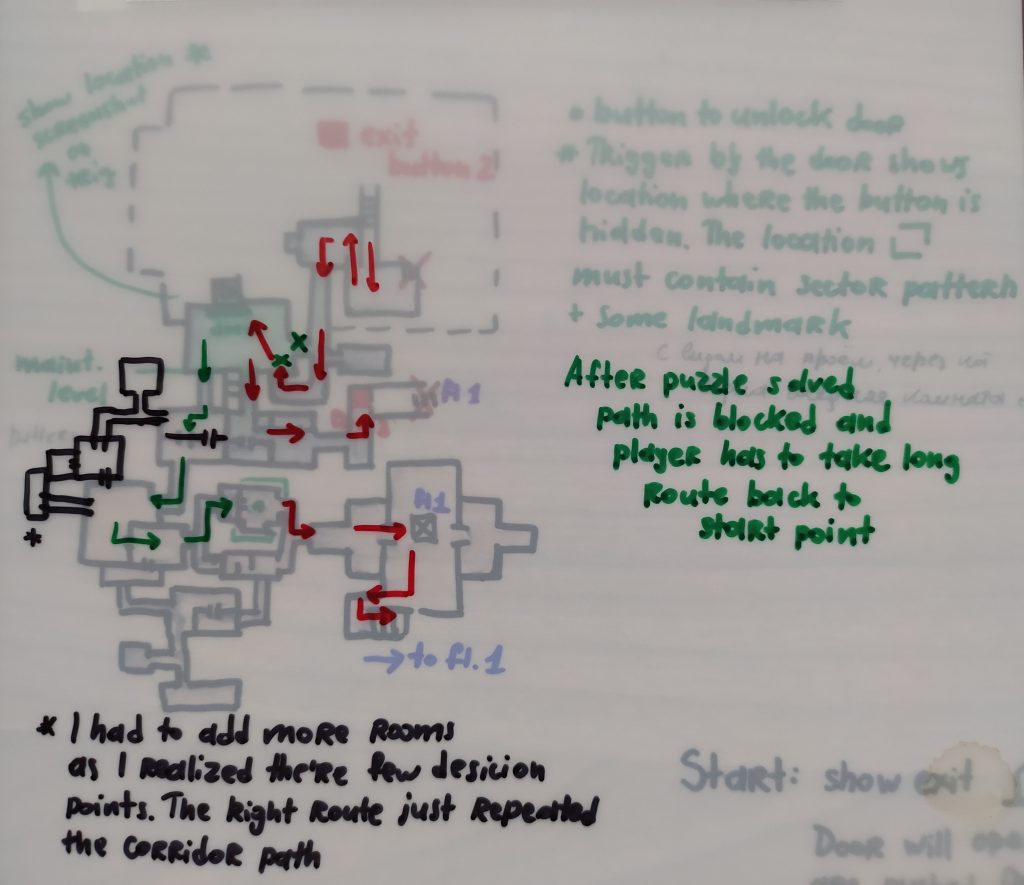 show location *
screenshot
or
exit
button 2
• button to unlock door
* Trigger by the door shows
location where the button is
hidden. The location
must contain sector pattern
+ some landmark
с видом на проем, через
maint.
level
fl 1
After puzzle solved
path is blocked and
player has to take long
Route back to
start point
fl 1
*
→ to fl. 1
* I had to add more rooms
as I realized there're few desicion
points. The right Route just repeated
the corridor path
Start: show exit
Door will ope